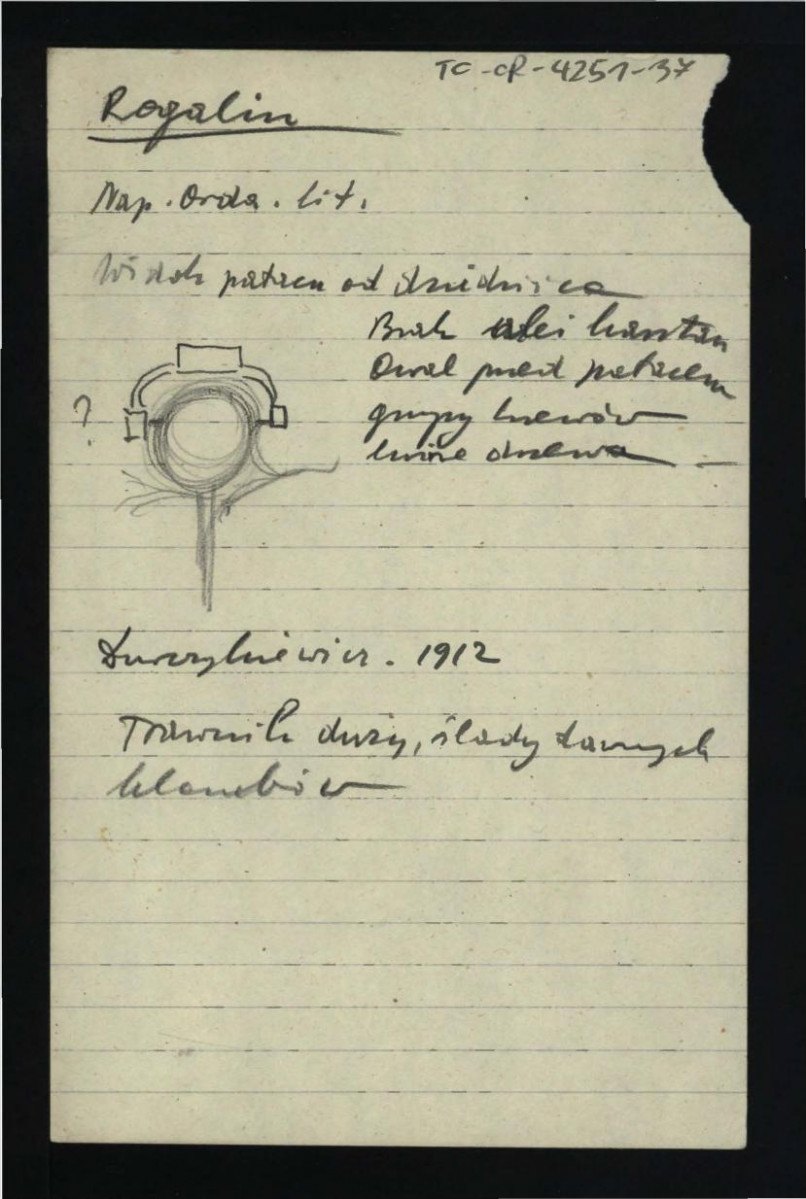 TC-CR-4251-37
Rogalin
Nap. Orda. lit.
Widok pałacu od dziedzińca
Brak alei kasztan
Owal przed pałacem
?
grupy krzewów
luźne drzewa
Durczykiewicz. 1912
Trawnik duży, ślady dawnych
klombów